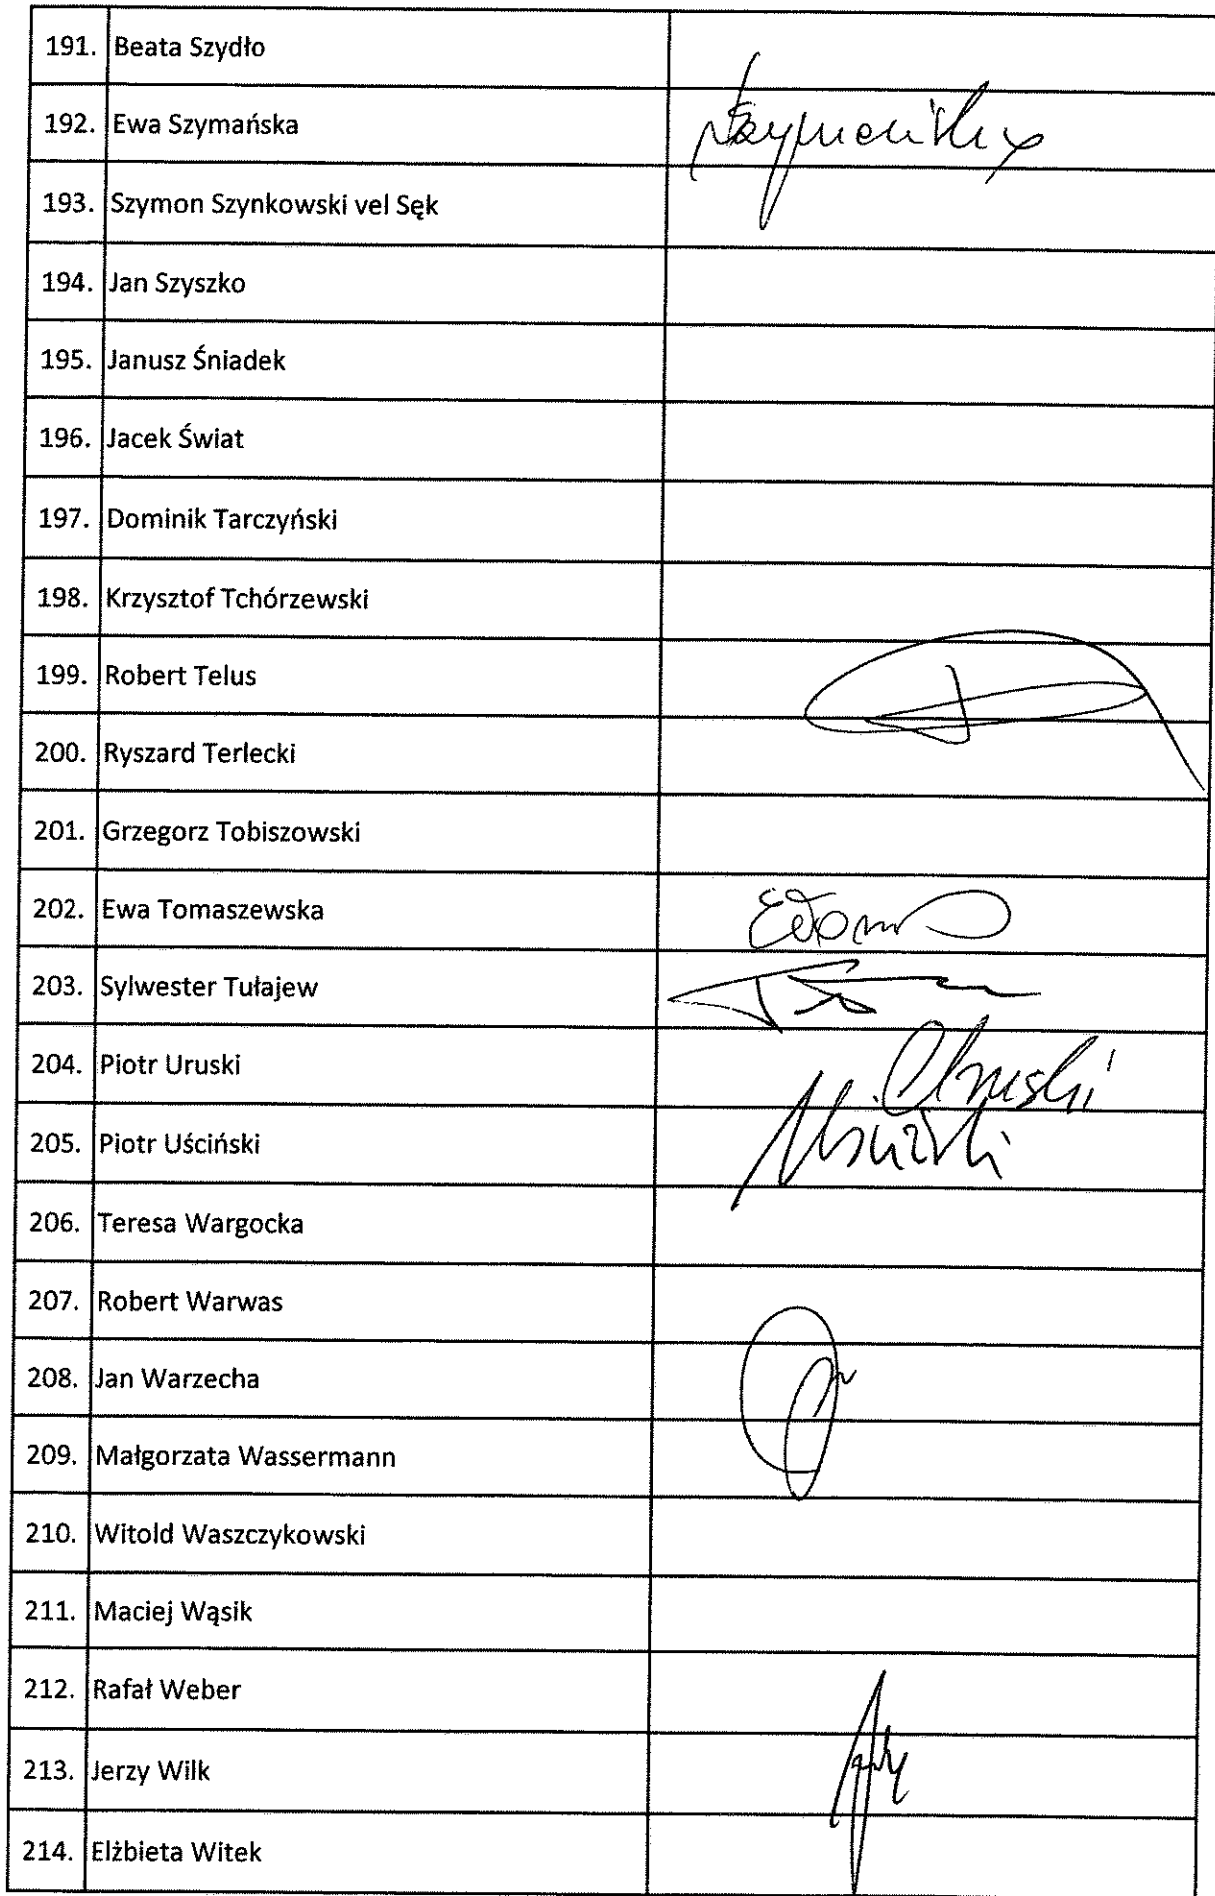 191. Beata Szydło
192. Ewa Szymańska Szymańska
193. Szymon Szynkowski vel Sęk
194. Jan Szyszko
195. Janusz Śniadek
196. Jacek Świat
197. Dominik Tarczyński
198. Krzysztof Tchórzewski
199. Robert Telus
200. Ryszard Terlecki
201. Grzegorz Tobiszowski
202. Ewa Tomaszewska
203. Sylwester Tułajew
204. Piotr Uruski Uruski
205. Piotr Uściński
206. Teresa Wargocka
207. Robert Warwas
208. Jan Warzecha
209. Małgorzata Wassermann
210. Witold Waszczykowski
211. Maciej Wąsik
212. Rafał Weber
213. Jerzy Wilk
214. Elżbieta Witek